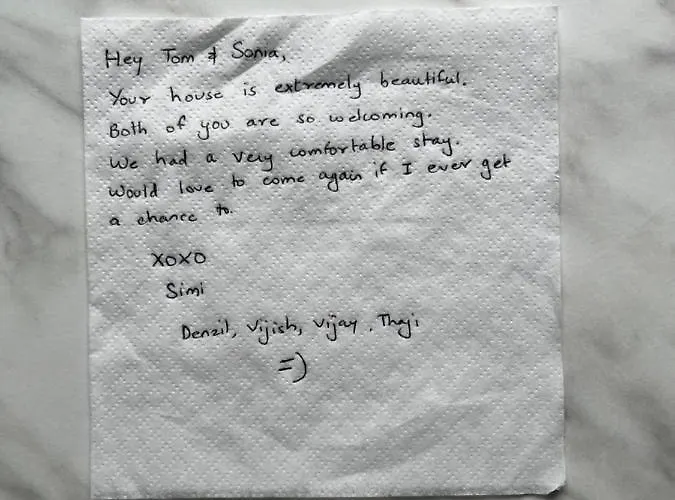 Hey Tom & Sonia,
Your house is extremely beautiful.
Both of you are so welcoming.
We had a very comfortable stay.
Would love to come again if I ever get
a chance to.
XOXO
Simi
Denzil, Vijish, Vijay, Thaji
=)